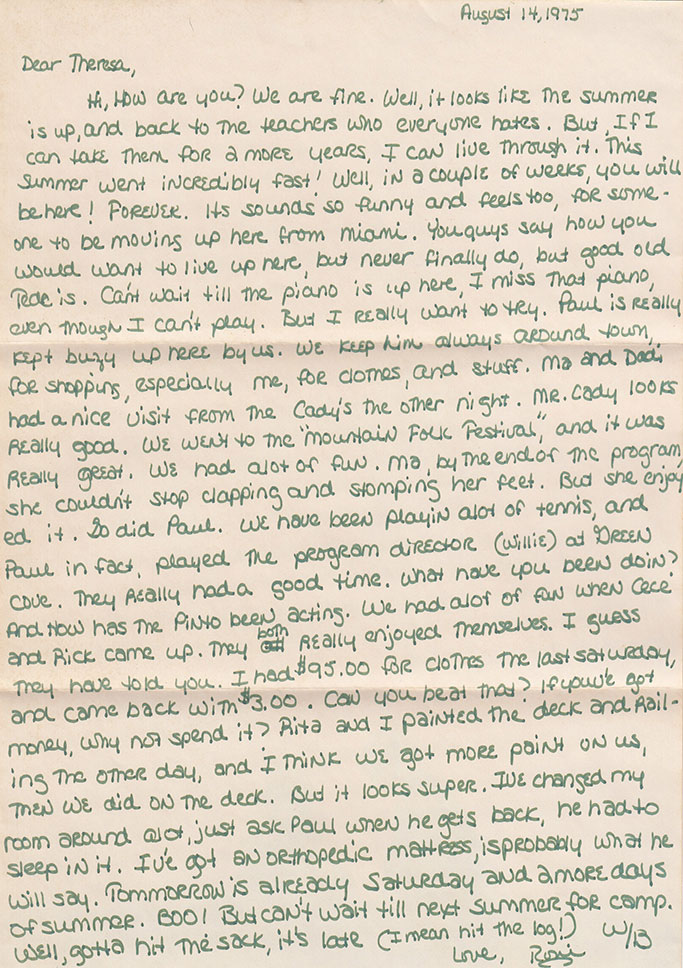 August 14, 1975
Dear Theresa,
Hi, How are you? We are fine. Well, it looks like the summer
is up, and back to the teachers who everyone hates. But, If I
can take them for 2 more years, I can live through it. This
summer went incredibly fast! Well, in a couple of weeks, you will
be here! FOREVER. Its sounds so funny and feels too, for some-
one to be moving up here from Miami. You guys say how you
would want to live up here, but never finally do, but good old
is. Can't wait till the piano is up here, I miss that piano,
even though I can't play. But I really want to try. Paul is really
kept buzy up here by us. We keep him always around town,
for shopping, especially me, for clothes, and stuff. Ma and Dad
had a nice visit from the Cady's the other night. Mr. Cady looks
really good. We went to the "Mountain Folk Festival", and it was
really great. We had alot of fun. Ma, by the end of the program,
she couldn't stop clapping and stomping her feet. But she enjoy
ed it. So did Paul. We have been playin alot of tennis, and
Paul in fact, played the program director (Willie) at Green
Cove. They really had a good time. What have you been doin?
And How has the Pinto been acting. We had alot of fun when Cece
and Rick came up. They both really enjoyed themselves. I guess
they have told you. I had $95.00 for clothes the last saturday,
and came back with $3.00. Can you beat that? If you've got
money, why not spend it? Rita and I painted the deck and rail-
ing the other day, and I think we got more paint on us,
then we did on the deck. But it looks super. I've changed my
room around alot, just ask Paul when he gets back, he had to
sleep in it. I've got an orthopedic mattress, is probably what he
will say. Tommorrow is already Saturday and 2 more days
of summer. BOO! But can't wait till next summer for camp.
Well, gotta hit the sack, it's late (I mean hit the log!) W/B
Love,